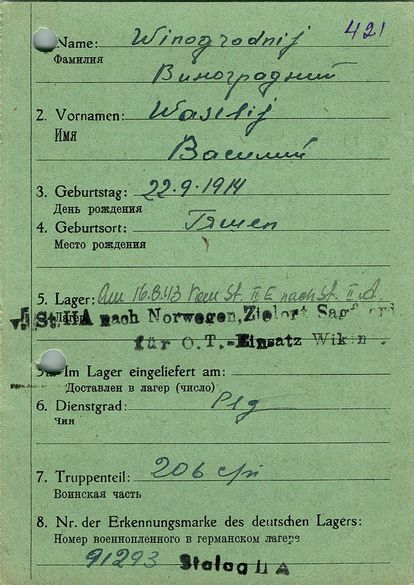 421
Name: Winogradnij
Фамилия
Виноградний
2. Vornamen: Wasilij
Имя
Василий
3. Geburtstag: 22.9.1914
День рождения
4. Geburtsort:
Место рождения
5. Lager: Am 16.8.43 vom St. II E nach St. II A.
v. St. IIA nach Norwegen, Zielort
für O.T.-Einsatz Wikin
Im Lager eingeliefert am:
Доставлен в лагерь (число)
6. Dienstgrad:
Чин
7. Truppenteil: 206
Воинская часть
8. Nr. der Erkennungsmarke des deutschen Lagers:
Номер военнопленного в германском лагере
91293 Stalag II A